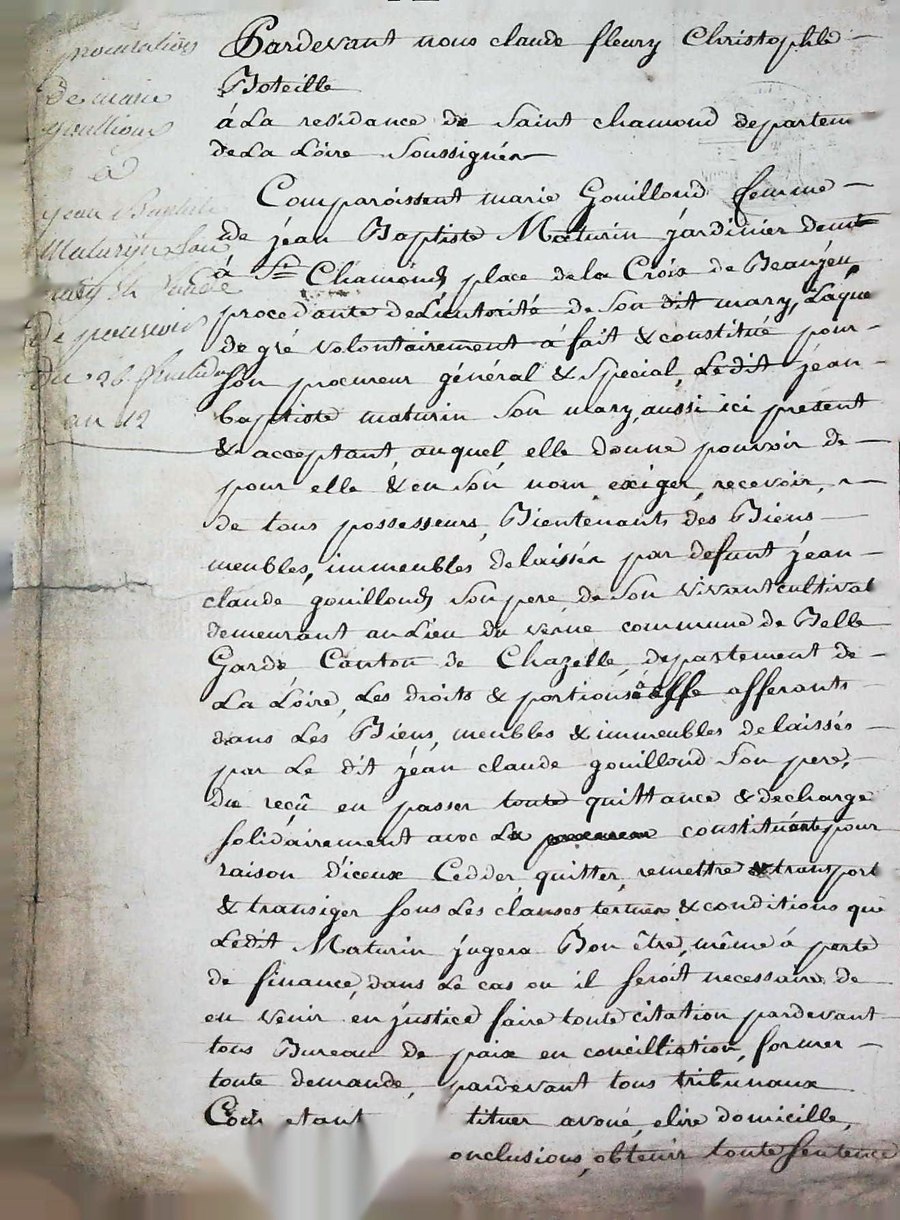 procuration
De marie
gouilliond
à
jean Baptiste
Maturin son
mary
De pouvoir
Du 26 fructidor
an 12
Pardevant nous claude fleury Christophle
Boteille
á La residance de Saint chamond departem
de La Loire Soussignés
Comparoissent marie Gouillond femme
de jean Baptiste Maturin jardinier demt
á St Chamond, place de la Croix de Beaujeu,
procedante de L'autorité de Son dit mary, Laque
de gré volontairement á fait & constitué pour
Son procureur général & Special, Le dit jean
baptiste maturin Son mary, aussi ici présent
& acceptant auquel elle donne pouvoir de
pour elle & en Son nom, exiger, recevoir,
de tous possesseurs, Bientenants des Biens
meubles, immeubles, delaissés par defunt jean
claude gouillond Son pere, de Son vivant cultivat
demeurant au Lieu du verne commune de Belle
Garde Canton de Chazelle, departement de
La Loire, Les droits & portions á elle afferants
dans Les Biens, meubles & immeubles delaissés
par Le dit jean claude gouillond Son pere,
du reçu en passer toute quittance & decharge
Solidairement avec La constituante pour
raison d'iceux Cedder quitter, remettre & transport
& transiger Sous Les clauses termes & conditions que
Le dit Maturin jugera Bon être, même á perte
de finance, dans Le cas ou il Seroit necessaire de
en venir en justice faire toute citation pardevant
tous Bureau de paix en concilliation, former
toute demande, pardevant tous tribunaux
Coür etant tituer avoué, elire domicille,
onclusions, obtenir toute Sentence